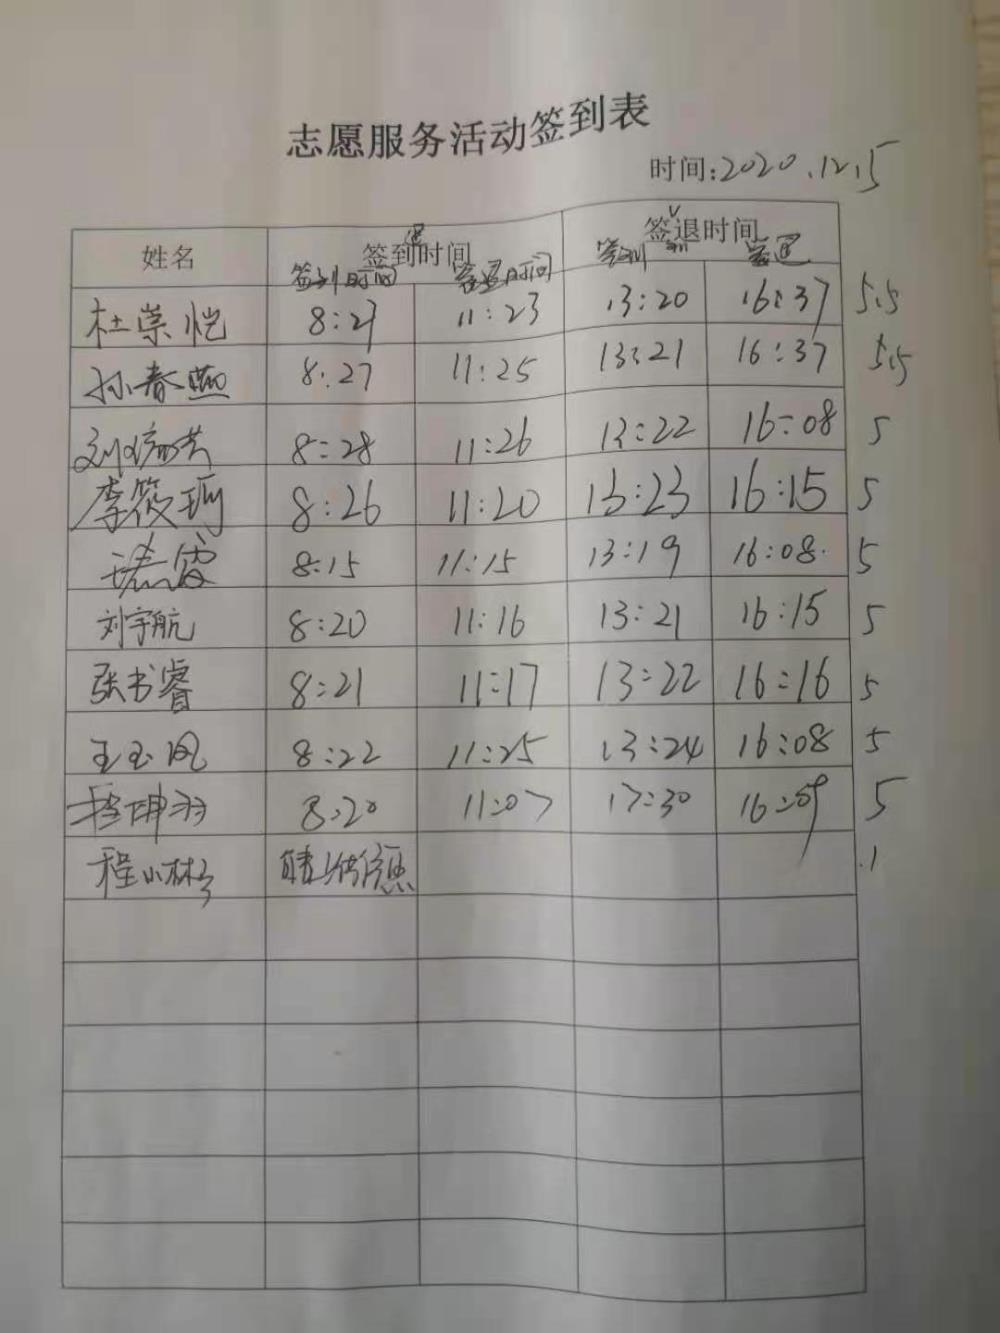 志愿服务活动签到表
时间:2020.12.5
姓名 签到时间 签退时间
签到时间 签退时间 签到 签退
杜崇恺 8:21 11:23 13:20 16:37 5.5
孙春燕 8:27 11:25 13:21 16:37 5.5
8:28 11:26 13:22 16:08 5
李筱珂 8:26 11:20 13:23 16:15 5
8:15 11:15 13:19 16:08 5
刘宇航 8:20 11:16 13:21 16:15 5
张书睿 8:21 11:17 13:22 16:16 5
王玉凤 8:22 11:25 13:24 16:08 5
8:20 11:07 17:30 16:09 5
程小林 1